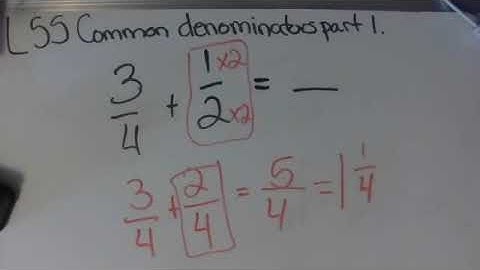 L 55 Common denominators part 1.
3/4 + 1×2/2×2 = __
3/4 + 2/4 = 5/4 = 1 1/4